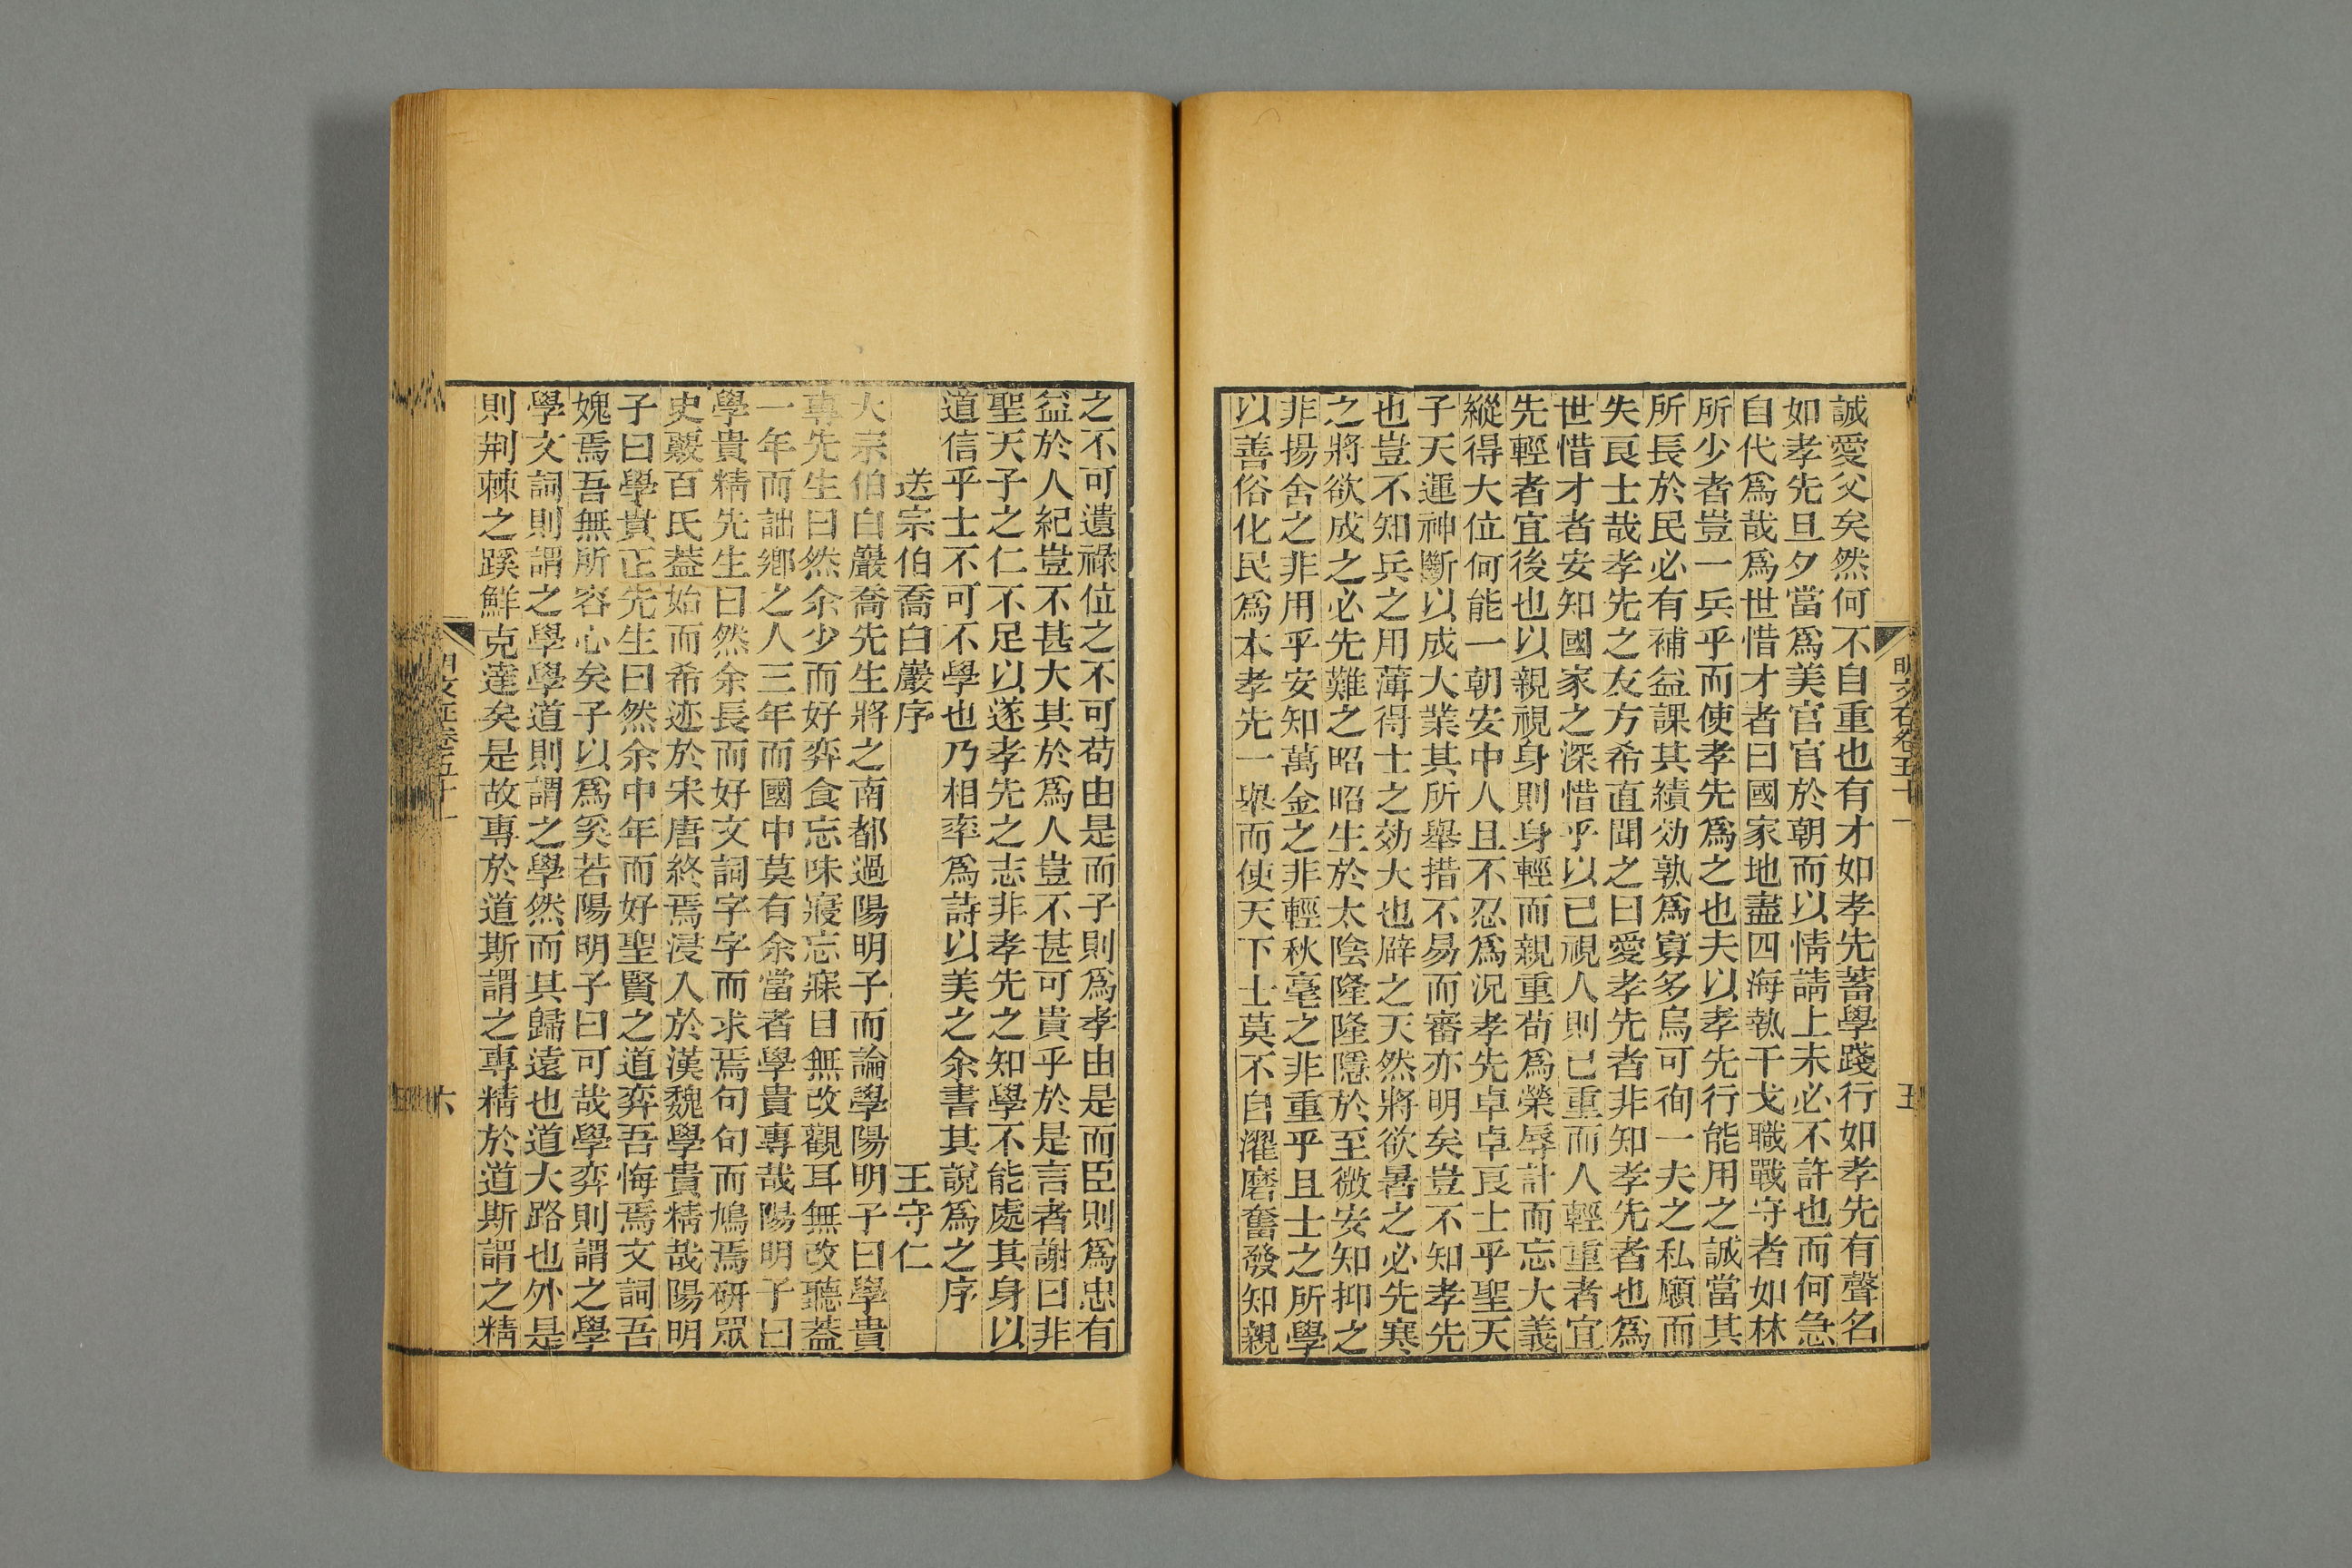 誠愛父矣然何不自重也有才如孝先蓄學踐行如孝先有聲名
如孝先旦夕當爲美官官於朝而以情請上未必不許也而何急
自代爲哉爲世惜才者曰國家地盡四海執干戈職戰守者如林
所少者豈一兵乎而使孝先爲之也夫以孝先行能用之誠當其
所長於民必有補益課其績効孰爲寡多烏可徇一夫之私願而
失良士哉孝先之友方希直聞之曰愛孝先者非知孝先者也爲
世惜才者安知國家之深惜乎以已視人則已重而人輕重者宜
先輕者宜後也以親視身則身輕而親重苟爲榮辱計而忘大義
縱得大位何能一朝安中人且不忍爲況孝先卓卓良士乎聖天
子天運神斷以成大業其所舉措不易而審亦明矣豈不知孝先
也豈不知兵之用薄得士之効大也辟之天然將欲暑之必先寒
之將欲成之必先難之昭昭生於太陰隆隆隱於至微安知抑之
非揚舍之非用乎安知萬金之非輕秋毫之非重乎且士之所學
以善俗化民爲本孝先一舉而使天下士莫不自濯磨奮發知親
明文在卷五十一
五
之不可遺祿位之不可苟由是而子則爲孝由是而臣則爲忠有
益於人紀豈不甚大其於爲人豈不甚可貴乎於是言者謝曰非
聖天子之仁不足以遂孝先之志非孝先之知學不能處其身以
道信乎士不可不學也乃相率爲詩以美之余書其說爲之序
送宗伯喬白巖序 王守仁
大宗伯白巖喬先生將之南都過陽明子而論學陽明子曰學貴
專先生曰然余少而好弈食忘味寢忘寐目無改觀耳無改聽葢
一年而詘鄉之人三年而國中莫有余當者學貴專哉陽明子曰
學貴精先生曰然余長而好文詞字字而求焉句句而鳩焉研眾
史覈百氏葢始而希迹於宋唐終焉浸入於漢魏學貴精哉陽明
子曰學貴正先生曰然余中年而好聖賢之道弈吾悔焉文詞吾
媿焉吾無所容心矣子以爲奚若陽明子曰可哉學弈則謂之學
學文詞則謂之學學道則謂之學然而其歸遠也道大路也外是
則荆棘之蹊鮮克達矣是故專於道斯謂之專精於道斯謂之精
明文在卷五十一
六